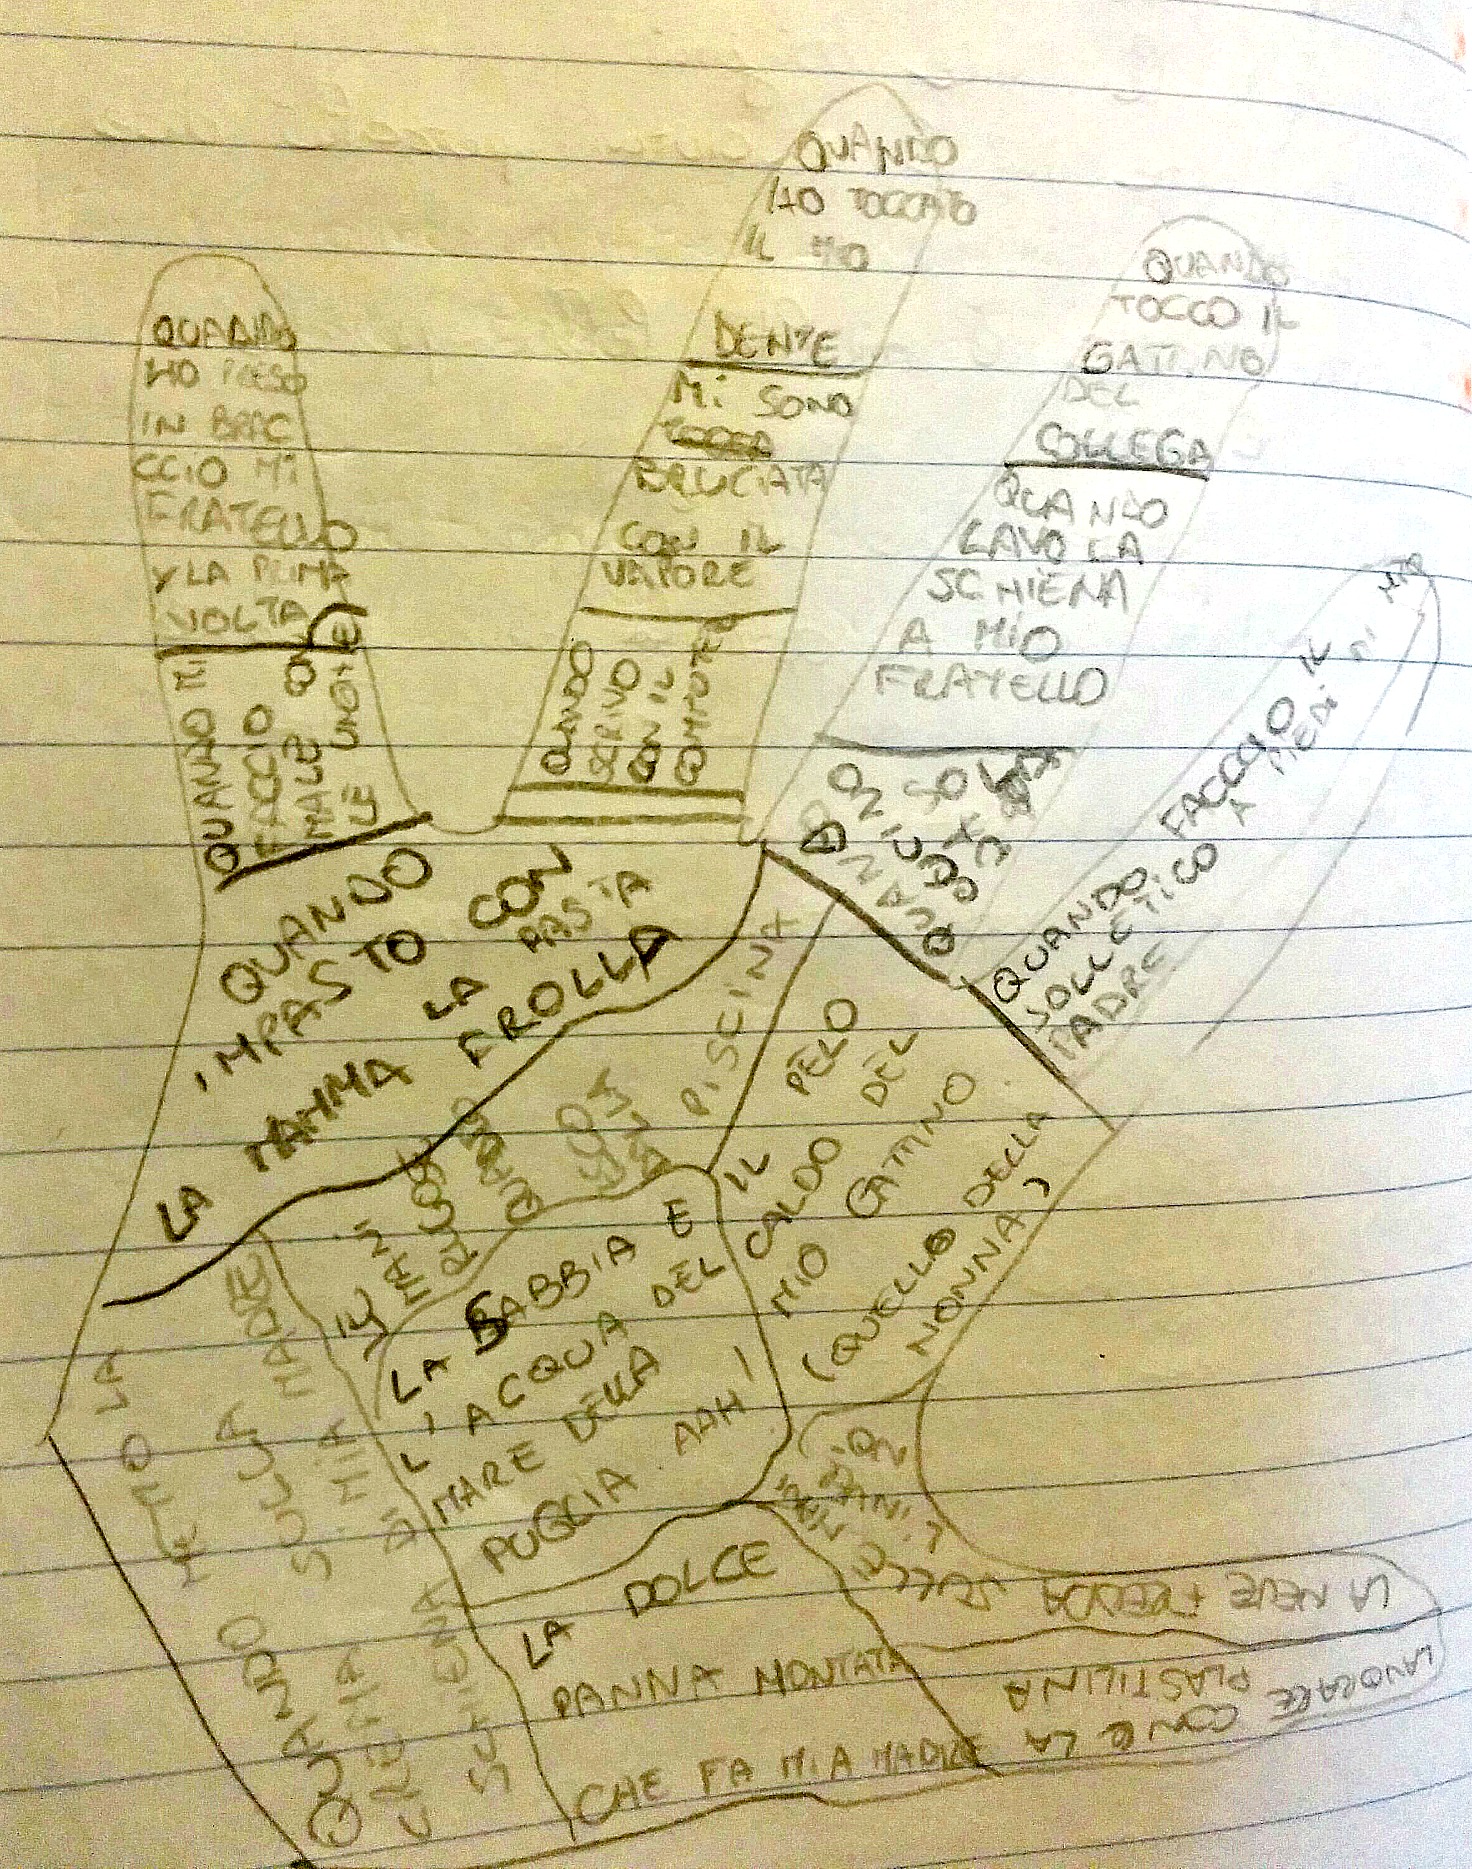 QUANDO
HO PRESO
IN BRAC
CCIO MI
FRATELLO
X LA PRIMA
VOLTA
QUANDO MI
FACCIO
MALE CON
LE UNGHIE
QUANDO
HO TOCCATO
IL MIO
DENTE
MI SONO
BRUCIATA
CON IL
VAPORE
QUANDO
SCRIVO
CON IL
COMPUTER
QUANDO
TOCCO IL
GATTINO
DEL
COLLEGA
QUANDO
LAVO LA
SCHIENA
A MIO
FRATELLO
QUANDO
QUANDO FACCCIO IL
SOLLETICO A MEDI MI
PADRE
QUANDO
IMPASTO CON
LA PASTA
LA MAMMA FROLLA
QUANDO
SOLA
PISCINA
MANI
IL PELO
CALDO DEL
MIO GATTINO
(QUELLO DELLA
NONNA)
LA SABBIA E
L'ACQUA DEL
MARE DELLA
PUGLIA AAH!
QUANDO METTO LA
CREMA SULLA
SCHIENA DI MIA MADRE
LA DOLCE
PANNA MONTATA
CHE FA MIA MADRE
LA NEVE FREDDA SULLE
MANI
LAVORARE
CON LA
PLASTILINA